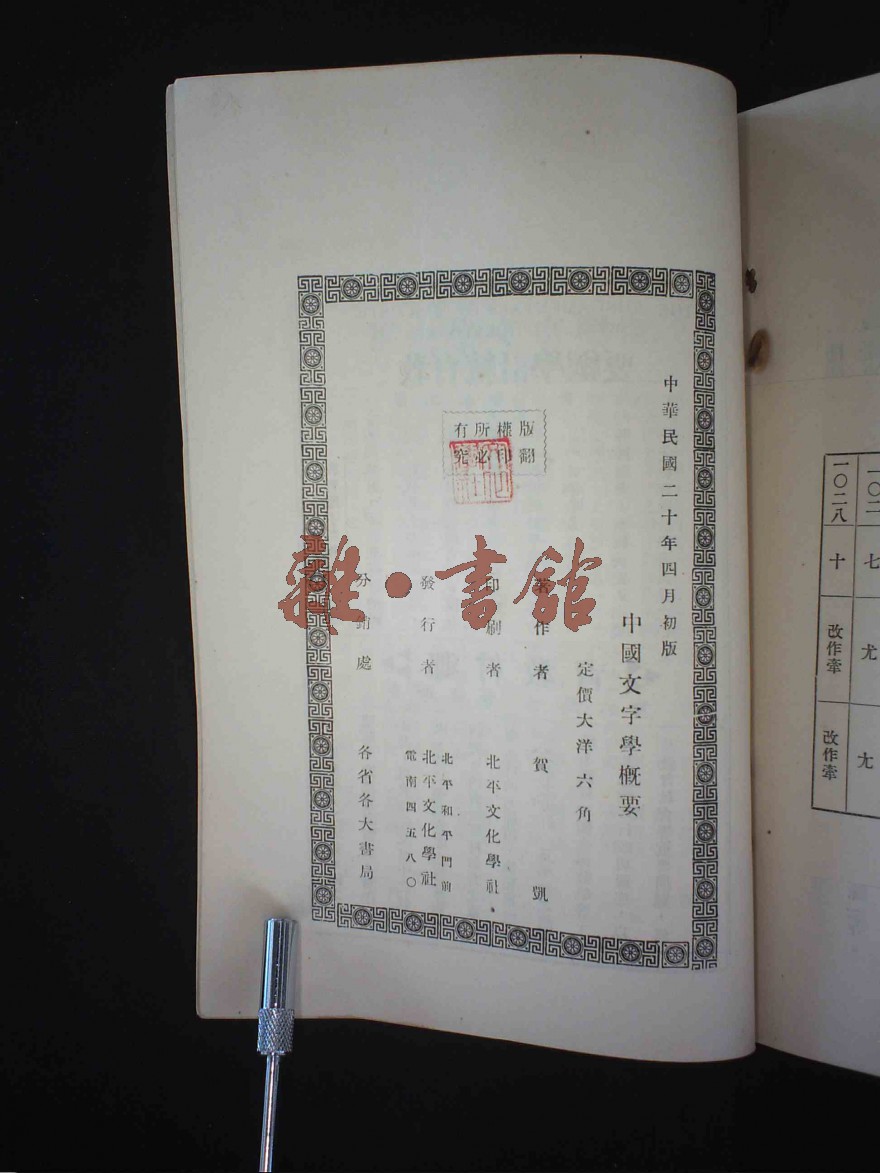 中華民國二十年四月初版
中國文字學概要
定價大洋六角
版權所有
翻印必究
著作者　賀　凱
印刷者　北平文化學社
發行者　北平和平門前
北平文化學社
電南四五八〇
分銷處　各省各大書局
雜·書館
一〇二
七
尤
尢
一〇二八
十
改作牽
改作牽